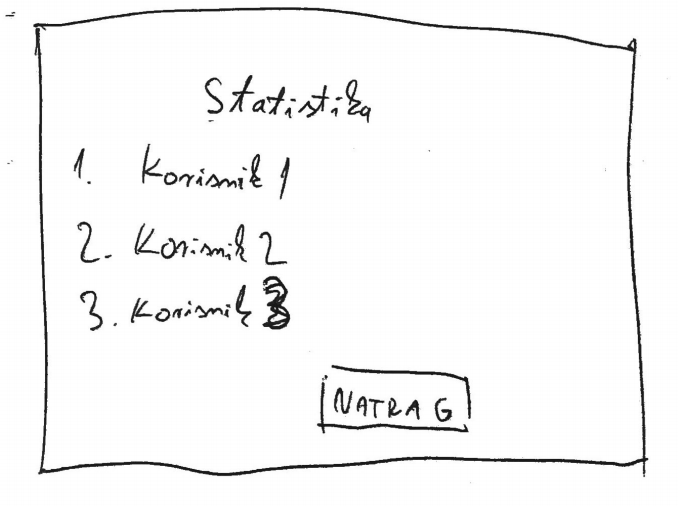 Statistika
1. Korisnik 1
2. Korisnik 2
3. Korisnik 3
NATRAG